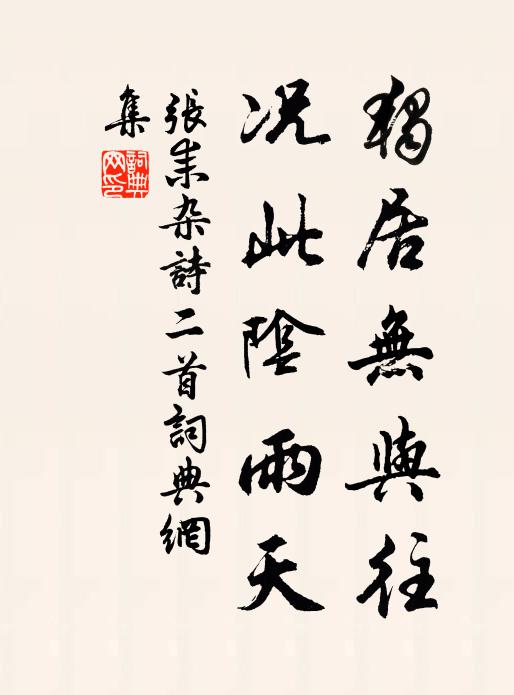 獨居無與往
況此陰雨天
張耒雜詩二首詞典網
集
詞典
网印